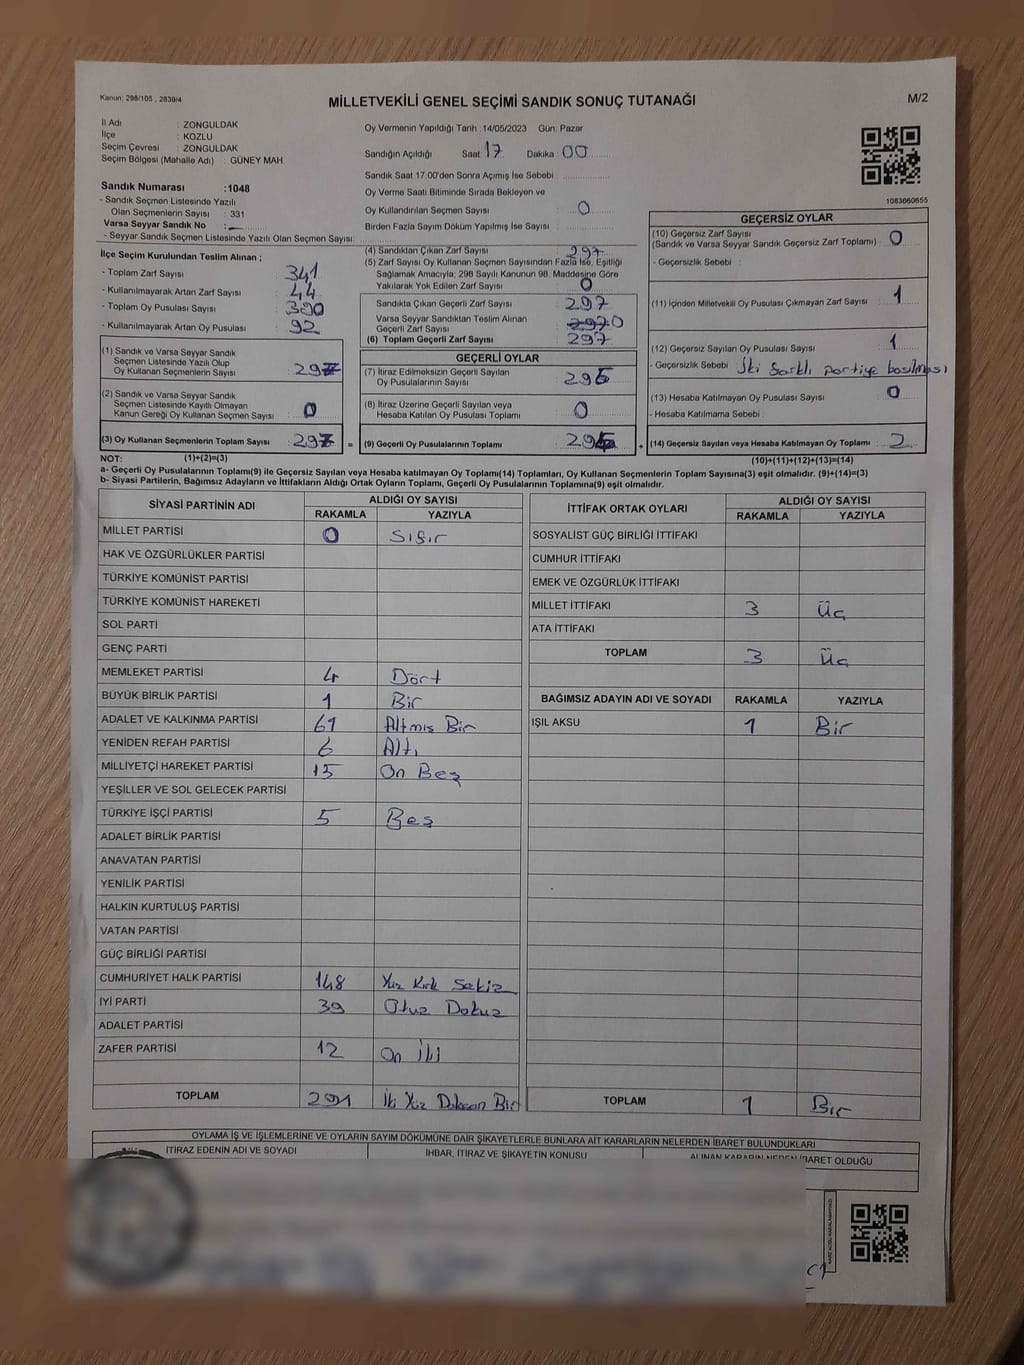 Kanun: 298/105 , 2839/4
MİLLETVEKİLİ GENEL SEÇİMİ SANDIK SONUÇ TUTANAĞI
M/2
İl Adı : ZONGULDAK
İlçe : KOZLU
Seçim Çevresi : ZONGULDAK
Seçim Bölgesi (Mahalle Adı) : GÜNEY MAH
Sandık Numarası :1048
- Sandık Seçmen Listesinde Yazılı
Olan Seçmenlerin Sayısı : 331
Varsa Seyyar Sandık No :
- Seyyar Sandık Seçmen Listesinde Yazılı Olan Seçmen Sayısı:
Oy Vermenin Yapıldığı Tarih :14/05/2023 Gün: Pazar
Sandığın Açıldığı Saat 17 Dakika 00
Sandık Saat 17:00'den Sonra Açımış İse Sebebi :
Oy Verme Saati Bitiminde Sırada Bekleyen ve
Oy Kullandırılan Seçmen Sayısı : 0
Birden Fazla Sayım Döküm Yapılmış İse Sayısı :
1083660655
İlçe Seçim Kurulundan Teslim Alınan ;
- Toplam Zarf Sayısı 341
- Kullanılmayarak Artan Zarf Sayısı 44
- Toplam Oy Pusulası Sayısı 390
- Kullanılmayarak Artan Oy Pusulası 92
(1) Sandık ve Varsa Seyyar Sandık
Seçmen Listesinde Yazılı Olup
Oy Kullanan Seçmenlerin Sayısı : 297
(2) Sandık ve Varsa Seyyar Sandık
Seçmen Listesinde Kayıtlı Olmayan
Kanun Gereği Oy Kullanan Seçmen Sayısı : 0
(3) Oy Kullanan Seçmenlerin Toplam Sayısı : 297 =
(4) Sandıktan Çıkan Zarf Sayısı 297
(5) Zarf Sayısı Oy Kullanan Seçmen Sayısından Fazla İse, Eşitliği
Sağlamak Amacıyla; 298 Sayılı Kanunun 98. Maddesine Göre
Yakılarak Yok Edilen Zarf Sayısı : 0
Sandıkta Çıkan Geçerli Zarf Sayısı : 297
Varsa Seyyar Sandıktan Teslim Alınan
Geçerli Zarf Sayısı : 297 0
(6) Toplam Geçerli Zarf Sayısı : 297
GEÇERLİ OYLAR
(7) İtiraz Edilmeksizin Geçerli Sayılan
Oy Pusulalarının Sayısı : 295
(8) İtiraz Üzerine Geçerli Sayılan veya
Hesaba Katılan Oy Pusulası Toplamı : 0
(9) Geçerli Oy Pusulalarının Toplamı : 295 +
GEÇERSİZ OYLAR
(10) Geçersiz Zarf Sayısı
(Sandık ve Varsa Seyyar Sandık Geçersiz Zarf Toplamı) : 0
- Geçersizlik Sebebi :
(11) İçinden Milletvekili Oy Pusulası Çıkmayan Zarf Sayısı : 1
(12) Geçersiz Sayılan Oy Pusulası Sayısı : 1
- Geçersizlik Sebebi : İki farklı partiye basılması
(13) Hesaba Katılmayan Oy Pusulası Sayısı : 0
- Hesaba Katılmama Sebebi :
(14) Geçersiz Sayılan veya Hesaba Katılmayan Oy Toplamı : 2
NOT: (1)+(2)=(3)
(10)+(11)+(12)+(13)=(14)
a- Geçerli Oy Pusulalarının Toplamı(9) ile Geçersiz Sayılan veya Hesaba katılmayan Oy Toplamı(14) Toplamları, Oy Kullanan Seçmenlerin Toplam Sayısına(3) eşit olmalıdır. (9)+(14)=(3)
b- Siyasi Partilerin, Bağımsız Adayların ve İttifakların Aldığı Ortak Oyların Toplamı, Geçerli Oy Pusulalarının Toplamına(9) eşit olmalıdır.
SİYASİ PARTİNİN ADI ALDIĞI OY SAYISI
RAKAMLA YAZIYLA
MİLLET PARTİSİ 0 Sıfır
HAK VE ÖZGÜRLÜKLER PARTİSİ
TÜRKİYE KOMÜNİST PARTİSİ
TÜRKİYE KOMÜNİST HAREKETİ
SOL PARTİ
GENÇ PARTİ
MEMLEKET PARTİSİ 4 Dört
BÜYÜK BİRLİK PARTİSİ 1 Bir
ADALET VE KALKINMA PARTİSİ 61 Altmış Bir
YENİDEN REFAH PARTİSİ 6 Altı
MİLLİYETÇİ HAREKET PARTİSİ 15 On Beş
YEŞİLLER VE SOL GELECEK PARTİSİ
TÜRKİYE İŞÇİ PARTİSİ 5 Beş
ADALET BİRLİK PARTİSİ
ANAVATAN PARTİSİ
YENİLİK PARTİSİ
HALKIN KURTULUŞ PARTİSİ
VATAN PARTİSİ
GÜÇ BİRLİĞİ PARTİSİ
CUMHURİYET HALK PARTİSİ 148 Yüz Kırk Sekiz
İYİ PARTİ 39 Otuz Dokuz
ADALET PARTİSİ
ZAFER PARTİSİ 12 On İki
TOPLAM 291 İki Yüz Doksan Bir
İTTİFAK ORTAK OYLARI ALDIĞI OY SAYISI
RAKAMLA YAZIYLA
SOSYALİST GÜÇ BİRLİĞİ İTTİFAKI
CUMHUR İTTİFAKI
EMEK VE ÖZGÜRLÜK İTTİFAKI
MİLLET İTTİFAKI 3 Üç
ATA İTTİFAKI
TOPLAM 3 Üç
BAĞIMSIZ ADAYIN ADI VE SOYADI RAKAMLA YAZIYLA
IŞIL AKSU 1 Bir
TOPLAM 1 Bir
OYLAMA İŞ VE İŞLEMLERİNE VE OYLARIN SAYIM DÖKÜMÜNE DAİR ŞİKAYETLERLE BUNLARA AİT KARARLARIN NELERDEN İBARET BULUNDUKLARI
İTİRAZ EDENİN ADI VE SOYADI İHBAR, İTİRAZ VE ŞİKAYETİN KONUSU ALINAN KARARIN NEDEN İBARET OLDUĞU